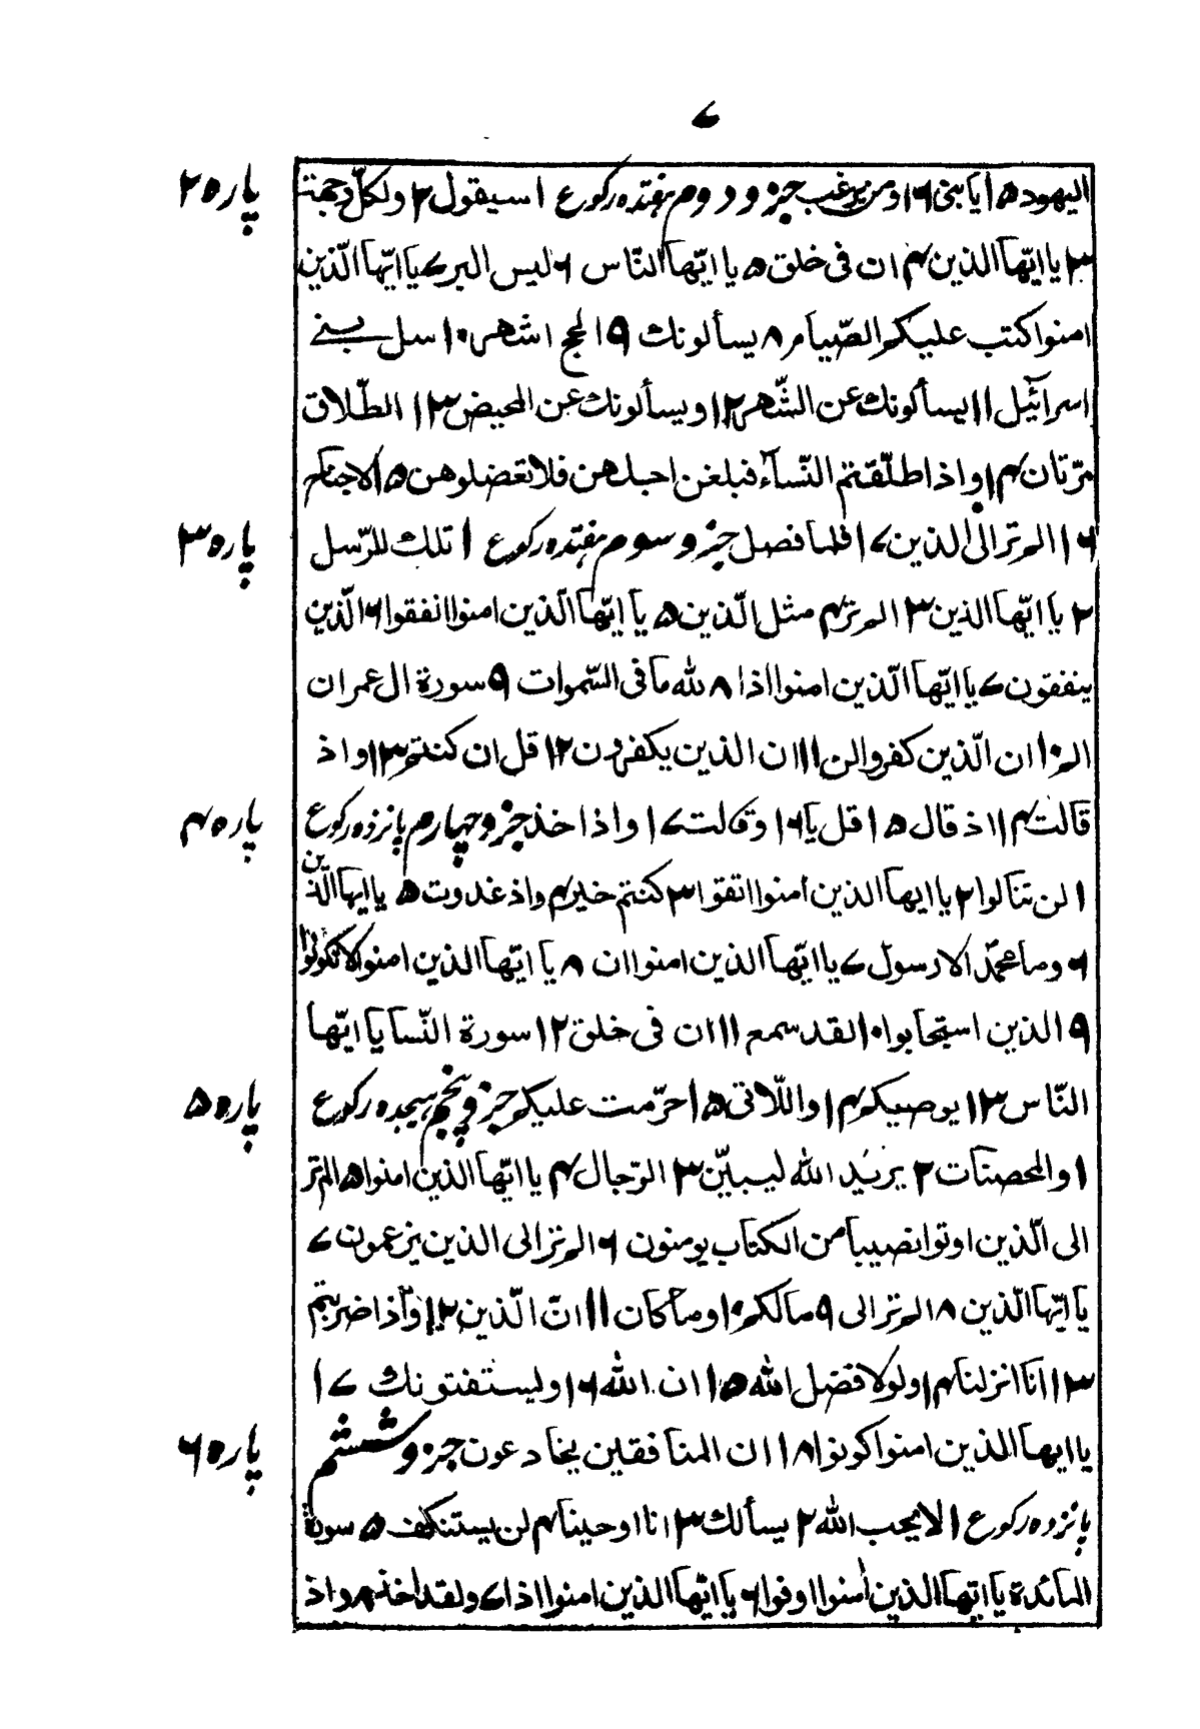 ۷
الیهود ۱۵ یا بنی ۱۶ ومن یرغب جزو دوم هفتده رکوع ۱ سیقول ۲ ولکلّ وجهة
پاره ۲
۳ یا ایّها الذین ۴ ان فی خلق ۵ یا ایّها النّاس ۶ لیس البر ۷ یا ایّها الّذین
امنوا کتب علیکم الصّیام ۸ یسألونك ۹ الحج اشهر ۱۰ سل بنے
اسرآئیل ۱۱ یسألونك عن الشّهر ۱۲ ویسألونك عن المحیض ۱۳ الطّلاق
مرّتان ۱۴ واذا طلّقتم النّسآء فبلغن اجلهن فلا تعضلوهن ۱۵ لاجناح
۱۶ الم تر الی الذین ۱۷ فلما فصل جزو سوم هفتده رکوع ۱ تلك الرّسل
پاره ۳
۲ یا ایّها الذین ۳ الم تر ۴ مثل الّذین ۵ یا ایّها الّذین امنوا انفقوا ۶ الّذین
ینفقون ۷ یا ایّها الّذین امنوا اذا ۸ لله ما فی السّموات ۹ سورة ال عمران
الم ۱۰ ان الّذین کفروا لن ۱۱ ان الذین یکفرون ۱۲ قل ان کنتم ۱۳ واذ
قالت ۱۴ اذ قال ۱۵ قل یا ۱۶ وقالت ۱۷ واذ اخذ جزو چهارم پانزده رکوع
پاره ۴
۱ لن تنالوا ۲ یا ایها الذین امنوا اتقوا ۳ کنتم خیر ۴ واذ غدوت ۵ یا ایها الّذین
۶ وما محمّد الا رسول ۷ یا ایّها الذین امنوا ان ۸ یا ایّها الذین امنوا لا تکونوا
۹ الذین استجابوا ۱۰ لقد سمع ۱۱ ان فی خلق ۱۲ سورة النّسا یا ایّها
النّاس ۱۳ یوصیکم ۱۴ واللّاتی ۱۵ حرّمت علیکم جزو پنجم هیجده رکوع
پاره ۵
۱ والمحصنات ۲ یرید الله لیبیّن ۳ الرّجال ۴ یا ایّها الذین امنوا ۵ الم تر
الی الّذین اوتوا نصیبا من الکتاب یومنون ۶ الم تر الی الذین یزعمون ۷
یا ایّها الّذین ۸ الم تر الی ۹ مالکم ۱۰ وما کان ۱۱ انّ الّذین ۱۲ واذا ضربتم
۱۳ انا انزلنا ۱۴ ولولا فضل الله ۱۵ ان الله ۱۶ ولیستفتونك ۱۷
یا ایها الذین امنوا کونوا ۱۸ ان المنافقین یخادعون جزو ششم
پاره ۶
پانزده رکوع ۱ لا یحب الله ۲ یسألك ۳ انا اوحینا ۴ لن یستنکف ۵ سورة
المائدة یا ایّها الذین امنوا اوفوا ۶ یا ایّها الذین امنوا اذا ۷ ولقد اخذ ۸ واذ